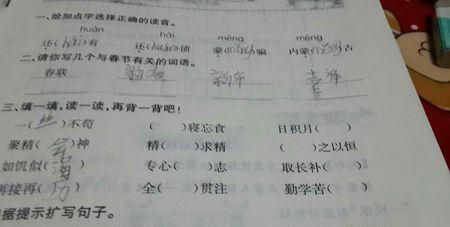 一、给加点字选择正确的读音。
huán hái mēng měng
还(hái)有 还(huán)债 蒙(mēng)骗 内蒙(měng)古
二、请你写几个与春节有关的词语。
春联
三、填一填,读一读,再背一背吧!
一(丝)不苟 ( )寝忘食 日积月( )
聚精(会)神 精( )求精 ( )之以恒
如饥似(渴) 专心( )志 取长补( )
再接再(厉) 全( )贯注 勤学苦( )
据提示扩写句子。